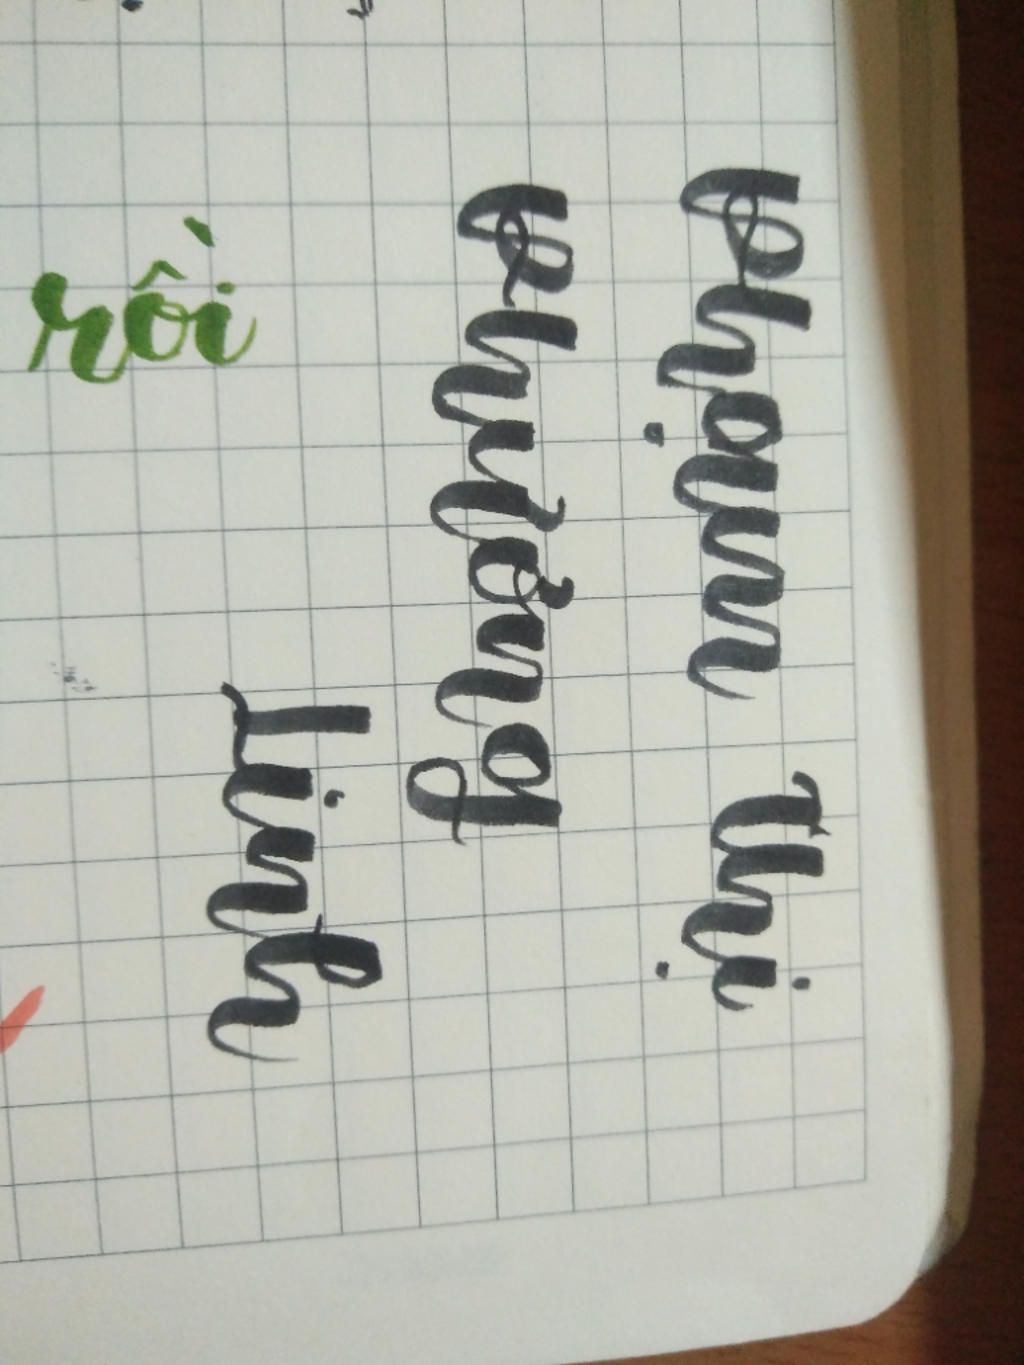 Phạm Thị
Phương
Linh
rồi